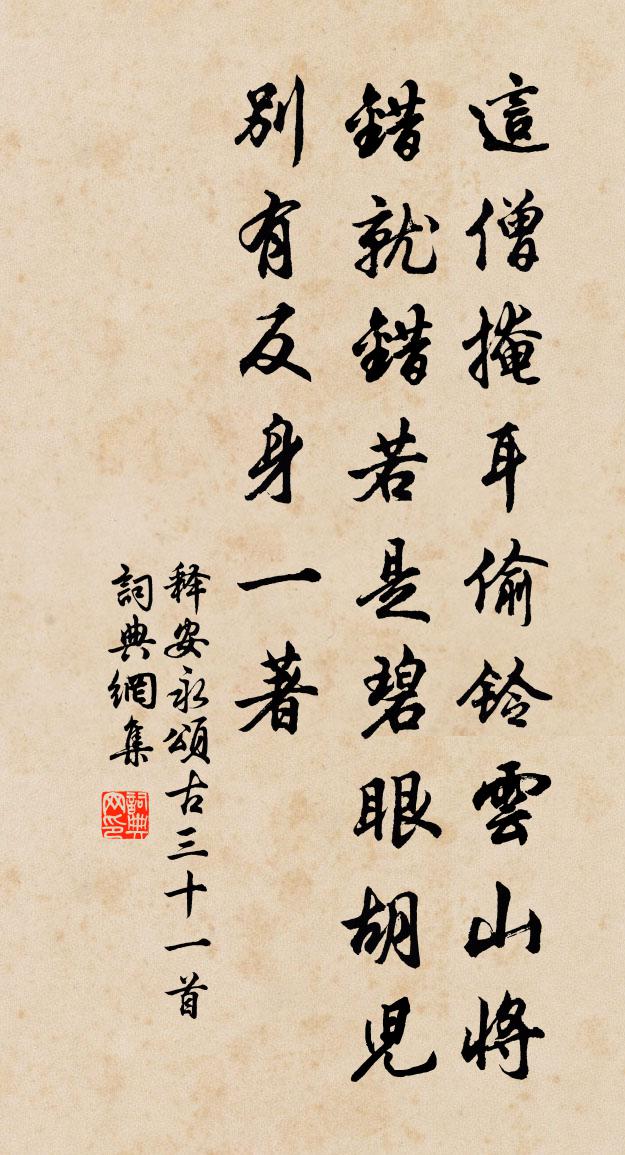 這僧掩耳偷鈴雲山將
錯就錯若是碧眼胡兒
別有反身一著
释安永頌古三十一首
詞典網集
詞典网印